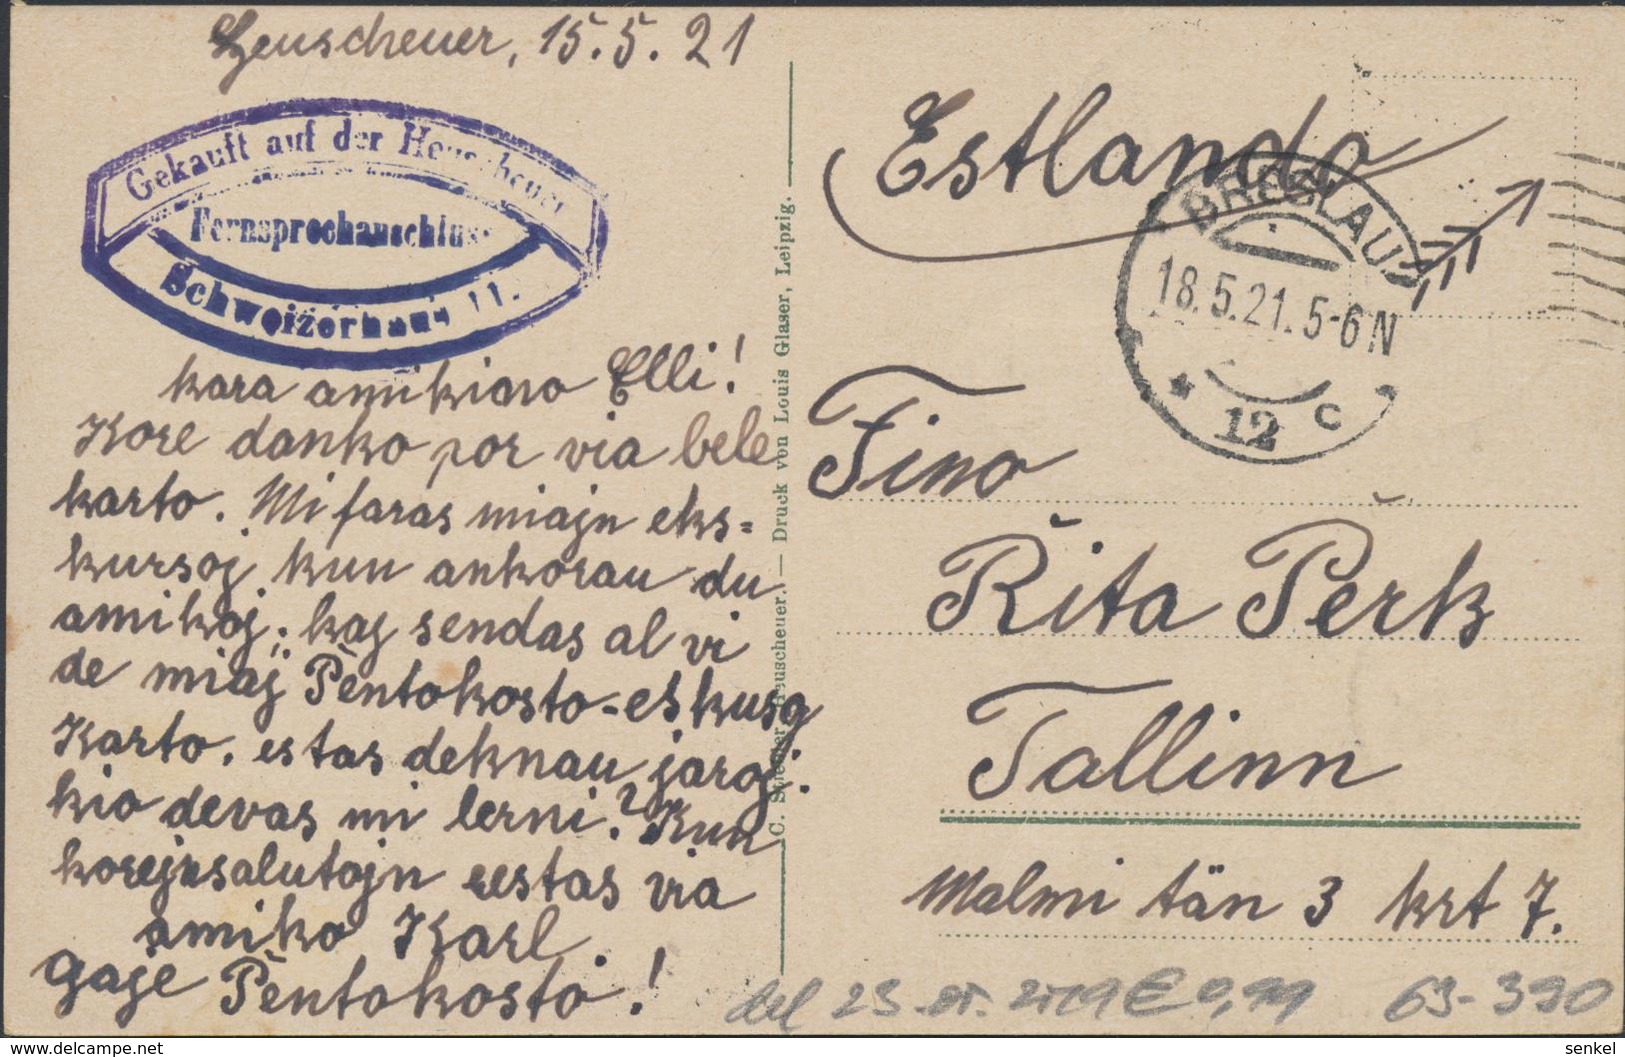 Heuscheuer, 15.5.21
Gekauft auf der Heuscheuer
Fernsprechanschluss
Schweizerhaus 11.
kara amikino Elli!
Kore danko por via bele
karto. Mi faras miajn eks=
kursoj kun ankorau du
amikoj, kaj sendas al vi
de miaj Pentokosto-eskursa
Karto. estas deknau jaroj.
kio devas mi lerni? Kun
korejn salutojn restas via
amiko Karl.
gaje Pentokosto!
C. Stiebler, Heuscheuer. — Druck von Louis Glaser, Leipzig.
Estlando
BRESLAU 2
18.5.21. 5-6 N
* 12 c
Fino
Rita Perk
Tallinn
Malmi tän 3 krt 7.
63-390
senkel